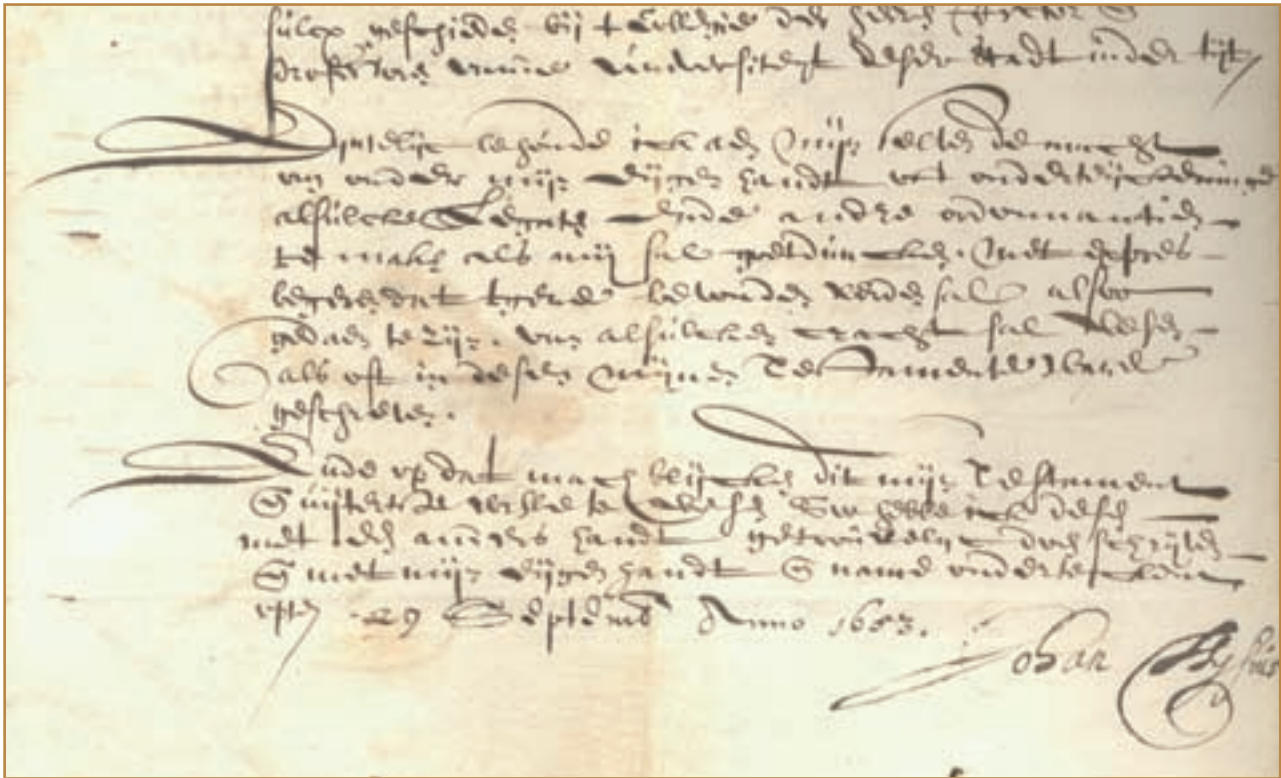 sulcx geschieden bij t Collegie der heeren
professoren vande universiteyt deser stadt inder tijt
behoude ick aen mijn selven de macht
om onder mijn eijgen handt oft onderteijckeninge
alsulcke Legaten ende andre ordonnantien
te maken als mij sal goetduncken. Met expres
begeren dat tgene bevonden werden sal alsoo
gedaen te zijn, van alsulcken cracht sal wesen
als oft in desen mijnen Testamente ware
geschreven.
Ende op dat mach blijcken dit mijn Testament
& uijterste wille te wesen Soo hebbe ick desen
met een anders handt getrouwelyck doen schryven
& met mijn eijgen handt & name onderteeckent
opten 29 Septemb Anno 1653.
Johan Thysius